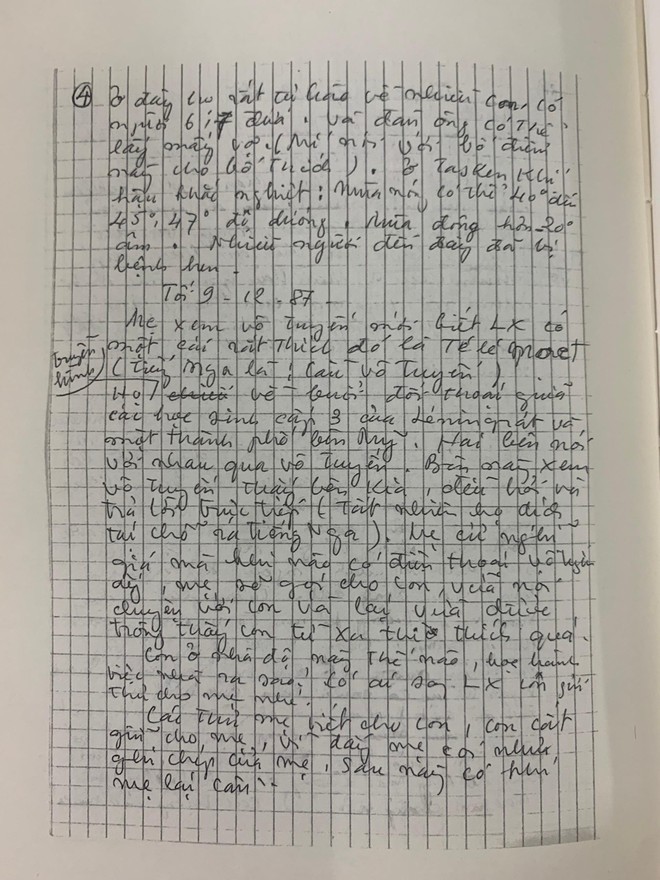 ④ Ở đây họ rất tự hào về nhiều con, có
người 6, 7 đứa. và đàn ông có thể
lấy mấy vợ. (Mí nói với bố điều
này cho bố thích). Ở Tasken khí
hậu khắc nghiệt: Mùa nóng có thể 40° đến
45°, 47° độ dương. Mùa đông hơn -20°
âm. Nhiều người đến đây đã bị
bệnh hen.
Tối 9-12-87.
Mẹ xem vô tuyến mới biết LX có
một cái rất thích đó là Télé
(tiếng Nga là: Cầu vô tuyến)
truyền
hình
Họ về buổi đối thoại giữa
các học sinh cấp 3 của Lêningrát và
một thành phố bên Mỹ. Hai bên nói
với nhau qua vô tuyến. Bên này xem
vô tuyến thấy bên kia, đều hỏi và
trả lời trực tiếp (tất nhiên họ dịch
tại chỗ ra tiếng Nga). Mẹ cứ nghĩ
giá mà hôm nào có điện thoại vô tuyến
ấy, mẹ sẽ gọi cho con, vừa nói
chuyện với con và lại vừa được
trông thấy con từ xa thì thích quá.
Con ở nhà độ này thế nào, học hành
việc nhà ra sao? Có ai sang LX con gửi
thư cho mẹ nhé.
Các thư mẹ viết cho con, con cất
giữ cho mẹ, vì đây mẹ coi như
ghi chép của mẹ, sau này có khi
mẹ lại cần..